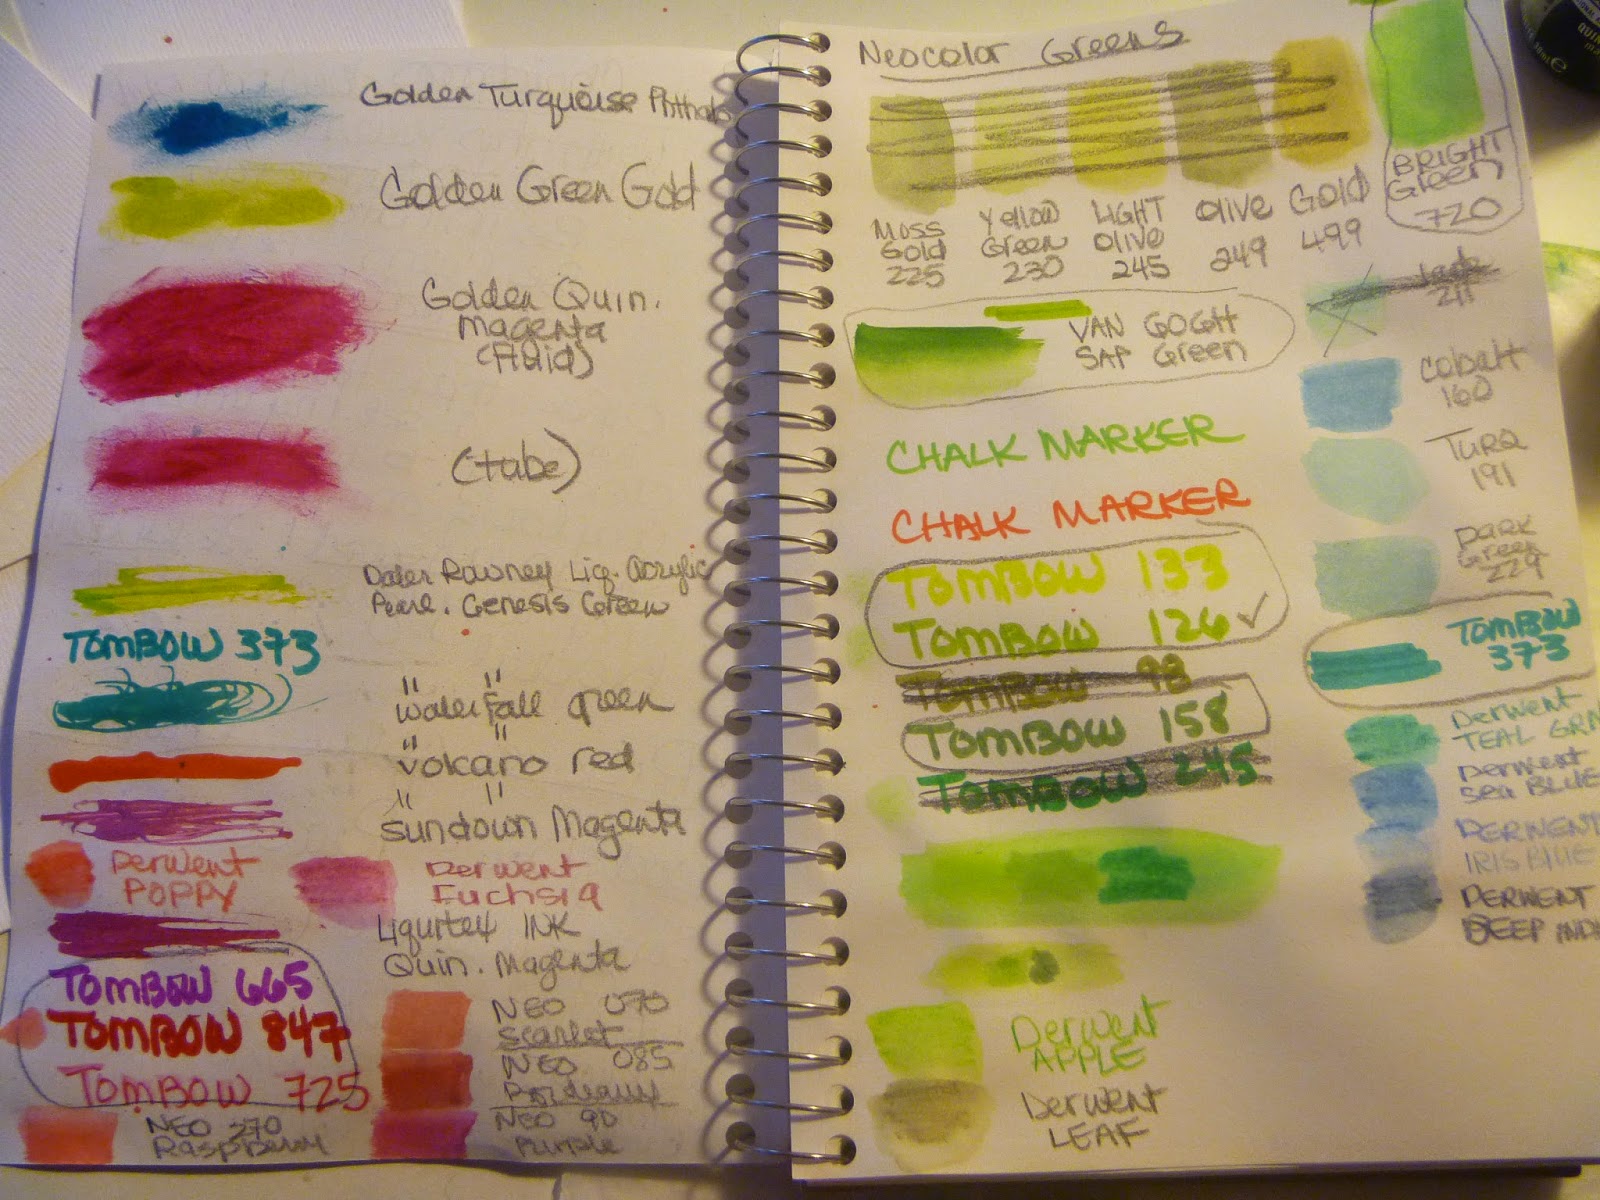 Golden Turquoise Phthalo
Golden Green Gold
Golden Quin.
Magenta
(Fluid)
(tube)
Daler Rowney Liq. Acrylic
Pearl. Genesis Green
TOMBOW 373
" "
Waterfall green
" "
volcano red
" "
Sundown Magenta
Derwent
POPPY
Derwent
Fuchsia
Liquitex INK
Quin. Magenta
TOMBOW 665
TOMBOW 847
TOMBOW 725
NEO 070
Scarlet
NEO 085
Bordeaux
NEO 90
Purple
NEO 270
Raspberry
Neocolor Greens
MOSS
Gold
225
Yellow
Green
230
LIGHT
Olive
245
Olive
249
Gold
499
BRIGHT
Green
720
211
VAN GOGH
SAP Green
Cobalt
160
TURQ
191
DARK
Green
229
CHALK MARKER
CHALK MARKER
TOMBOW 133
TOMBOW 126 ✓
TOMBOW 98
TOMBOW 158
TOMBOW 245
TOMBOW
373
Derwent
TEAL GRN
Derwent
Sea BLUE
DERWENT
IRIS BLUE
DERWENT
DEEP IND
Derwent
APPLE
Derwent
LEAF